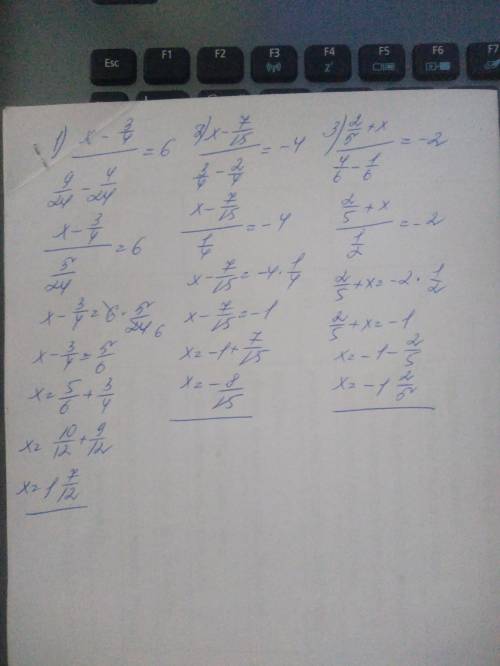 Esc F1 F2 F3 F4 F5 F6
1) (x - 3/4) / (9/24 - 4/24) = 6
(x - 3/4) / (5/24) = 6
x - 3/4 = 6 · 5/24 6
x - 3/4 = 5/6
x = 5/6 + 3/4
x = 10/12 + 9/12
x = 1 7/12
2) (x - 7/15) / (3/4 - 2/4) = -4
(x - 7/15) / (1/4) = -4
x - 7/15 = -4 · 1/4
x - 7/15 = -1
x = -1 + 7/15
x = - 8/15
3) (2/5 + x) / (4/6 - 1/6) = -2
(2/5 + x) / (1/2) = -2
2/5 + x = -2 · 1/2
2/5 + x = -1
x = -1 - 2/5
x = -1 2/5